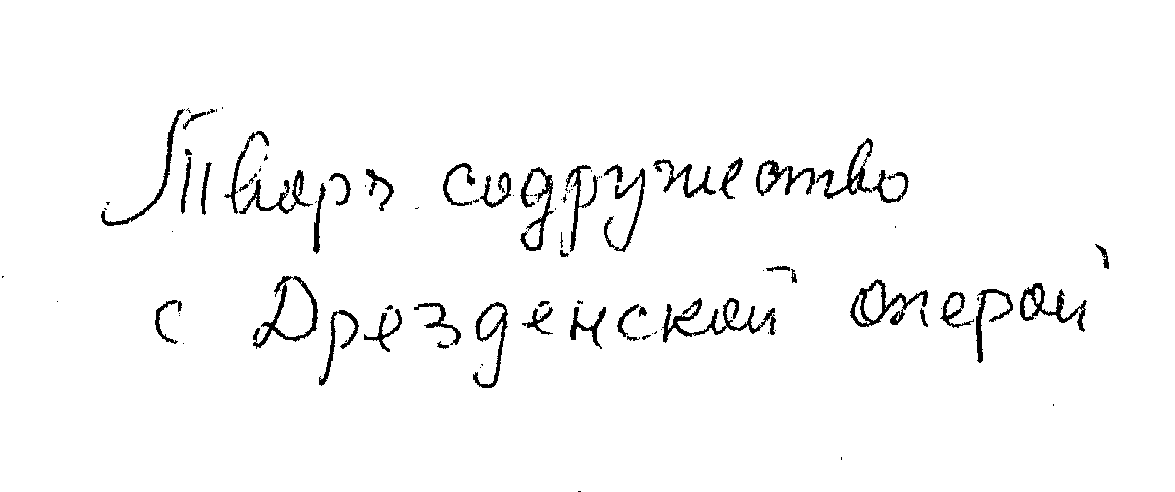 Творч. содружество
с Дрезденской оперой